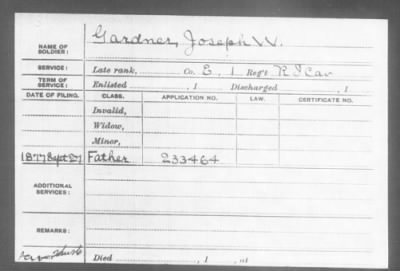 NAME OF SOLDIER: Gardner, Joseph W.
SERVICE: Late rank, Co. E, 1 Reg't R I Cav
TERM OF SERVICE: Enlisted , 1 Discharged , 1
DATE OF FILING. CLASS. APPLICATION NO. LAW. CERTIFICATE NO.
Invalid,
Widow,
Minor,
1877 Sept 27 Father 233464
ADDITIONAL SERVICES:
REMARKS:
Died , 1 , at